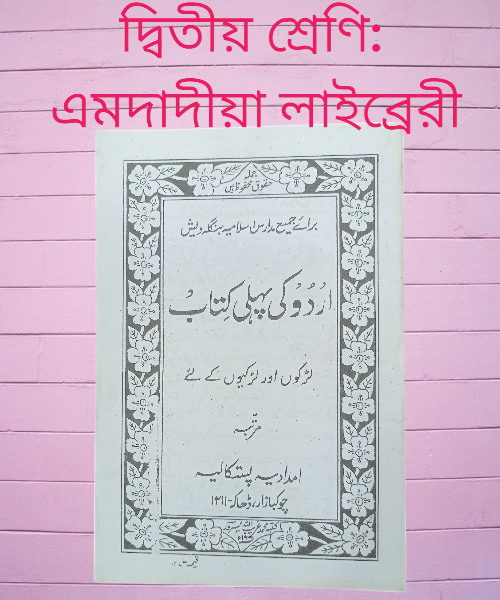 দ্বিতীয় শ্রেণি:
এমদাদীয়া লাইব্রেরী
جملہ
حقوق محفوظ ہیں
برائے جمیع مدارس اسلامیہ بنگلہ دیش
اردو کی پہلی کتاب
لڑکوں اور لڑکیوں کے لئے
مرتبہ
امدادیہ پستکالیہ
چوکبازار، ڈھاکہ-۱۲۱۱
قیمت